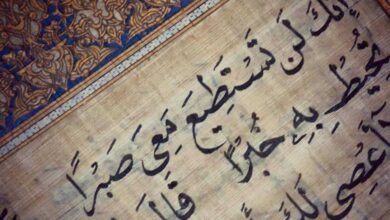 إنك لَن تَسْتَطِيعَ مَعِىَ صَبْرًا
تُحِطْ بِهِ خُبْرًا قَالَ
أَعْصِى لَكَ